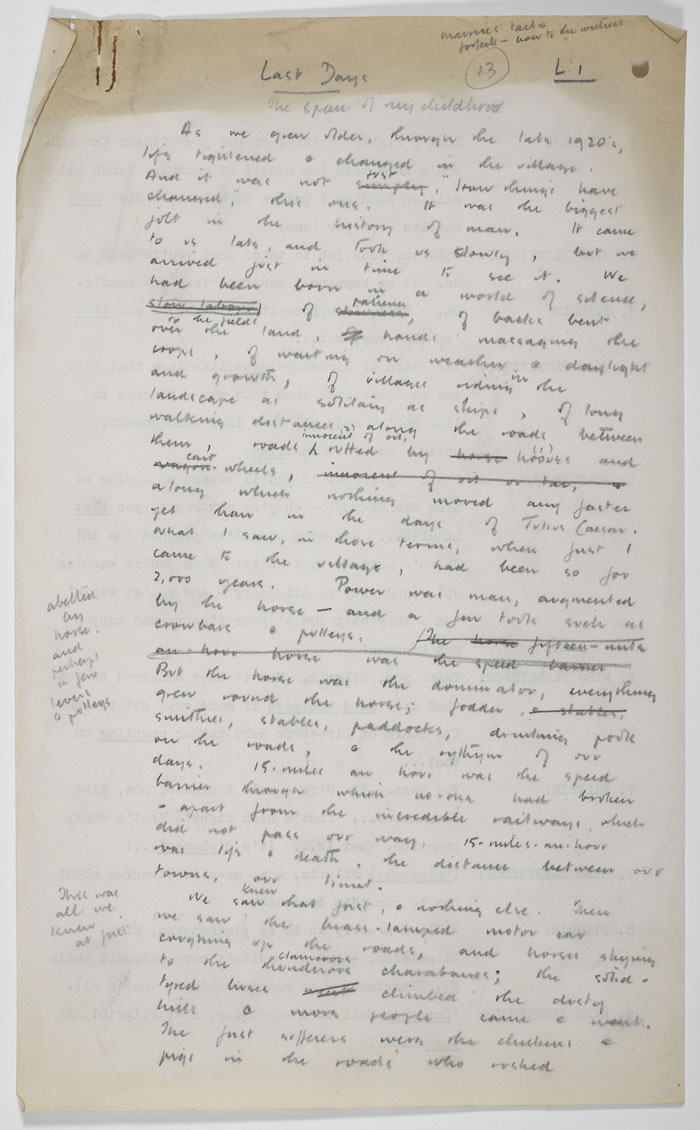 Marnie's
13
L.1
Last Days
The span of my childhood
As we grew older, through the late 1920's,
life tightened & changed in the village.
just
And it was not simply, "how things have
changed," this was. It was the biggest
jolt in the history of man. It came
to us late, and took us slowly, but we
arrived just in time to see it. We
had been born in a world of silence,
patience
slow labour, of slowness, of backs bent
to the fields
over the land, of hands massaging the
crops, of waiting on weather & daylight
and growth, of villages riding in the
landscape as solitary as ships, of long
walking distances along the roads between
innocent of oil,
them, roads rutted by horse hooves and
cart
wagon wheels, innocent of oil or tar, &
along which nothing moved any faster
yet than in the days of Julius Caesar.
What I saw, in those terms, when first I
came to the village, had been so for
2,000 years. Power was man, augmented
by the horse – and a few tools such as
crowbars & pulleys. The horse fifteen-mile
an hour horse was the speed barrier
But the horse was the dominator, everything
grew round the horse; fodder, & stables,
smithies, stables, paddocks, drinking pools
on the roads, & the rythym of our
days. 15-miles an hour was the speed
barrier through which no-one had broken
- apart from the incredible railways, which
did not pass our way. 15-miles-an-hour
was life & death, the distance between our
towns, our limit.
knew
We saw that first, & nothing else. Then
we saw the brass-lamped motor car
coughing up the roads, and horses shying
clamorous
to the thunderous charabancs; the solid-
tyred buses went climbed the dusty
hills & more people came & went.
The first sufferers were the chickens &
pigs in the roads who rushed
abetted
by
horse.
and
perhaps
a few
levers
& pulleys
This was
all we
knew
at first